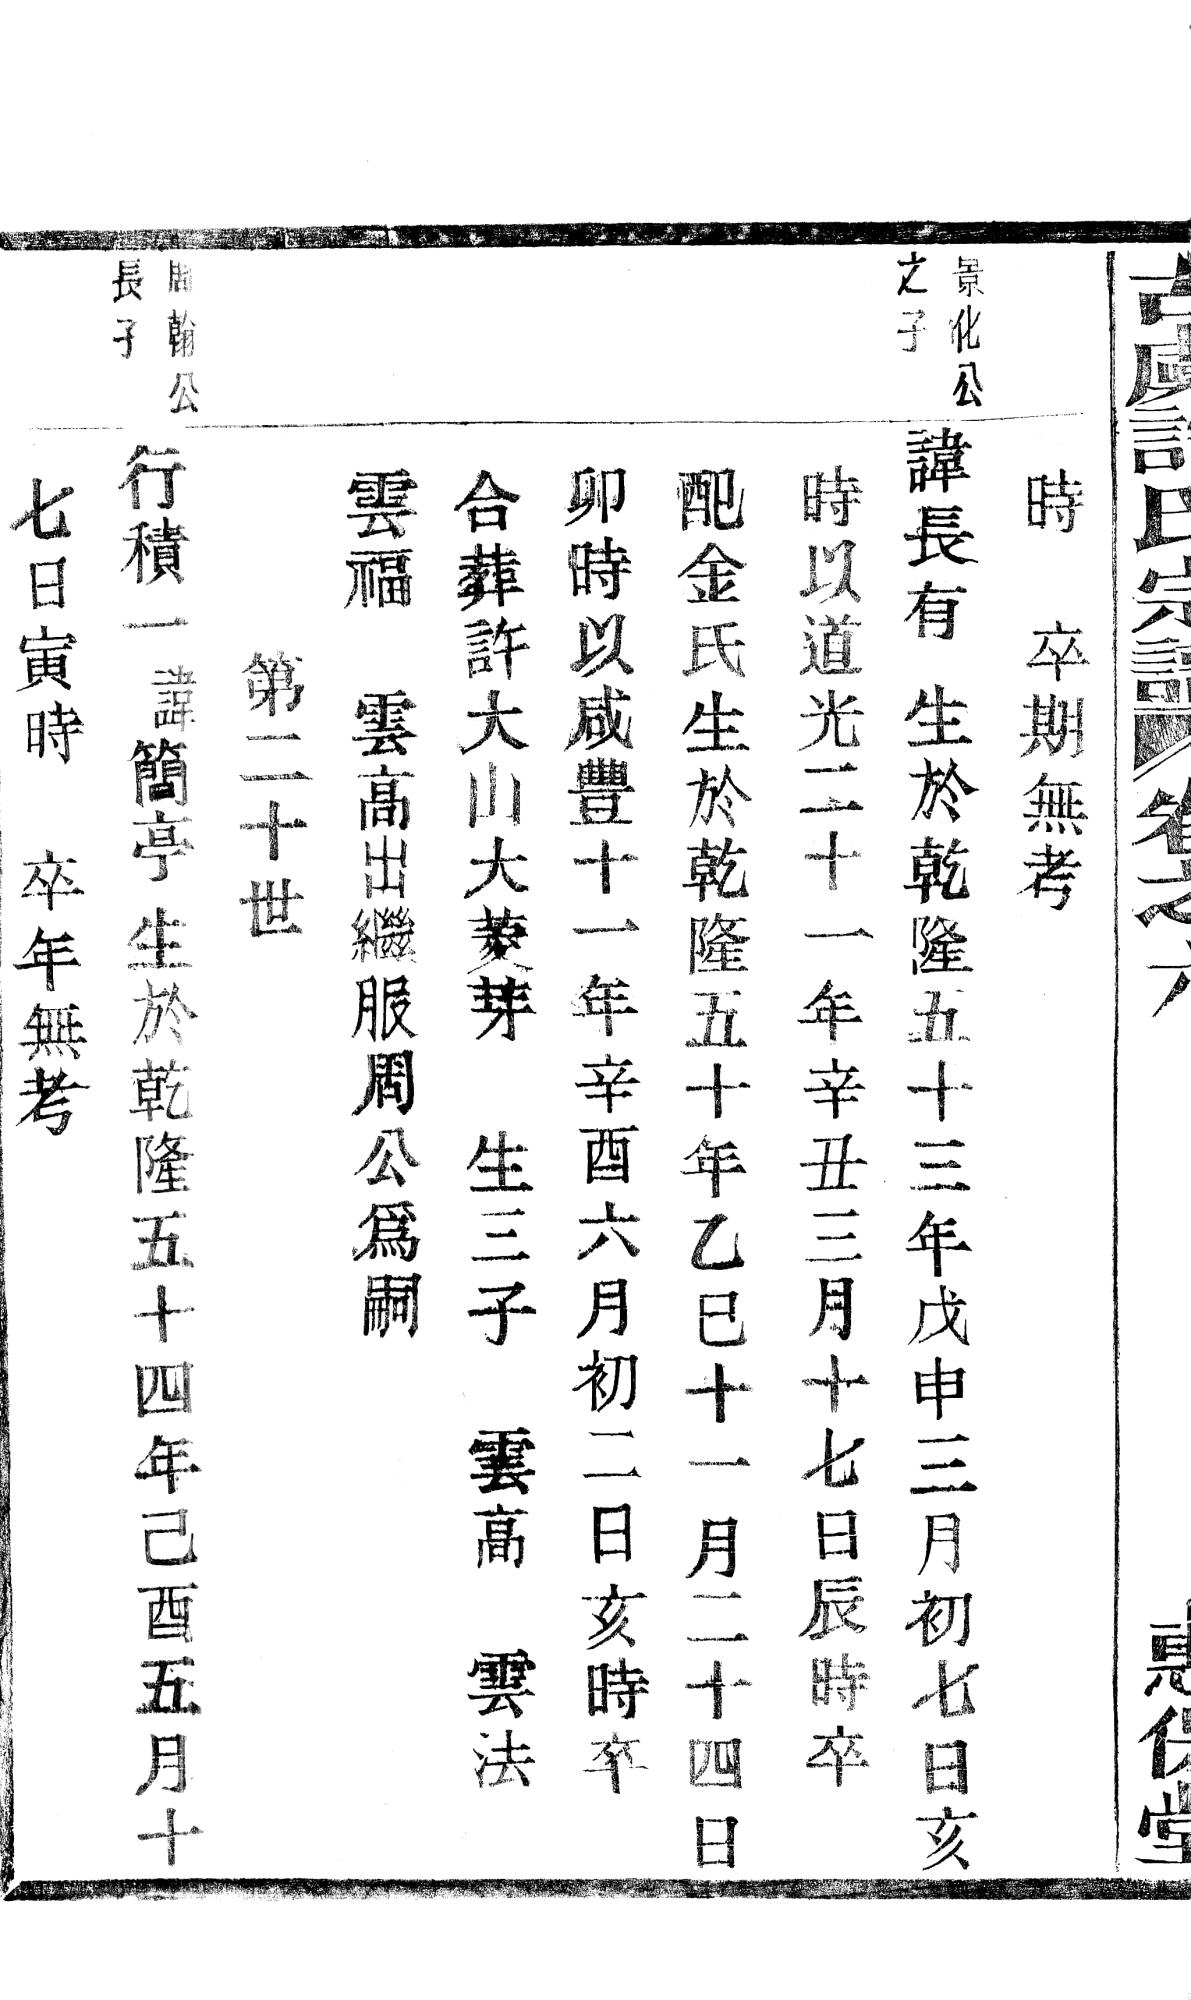 古虞許氏宗譜 卷之六 惠保堂
時 卒期無考
景化公
之子
諱長有 生於乾隆五十三年戊申三月初七日亥
時以道光二十一年辛丑三月十七日辰時卒
配金氏生於乾隆五十年乙巳十一月二十四日
卯時以咸豐十一年辛酉六月初二日亥時卒
合葬許大山大菱芽 生三子 雲高 雲法
雲福 雲高出繼服周公爲嗣
第二十世
周翰公
長子
行積一諱簡亭生於乾隆五十四年己酉五月十
七日寅時 卒年無考